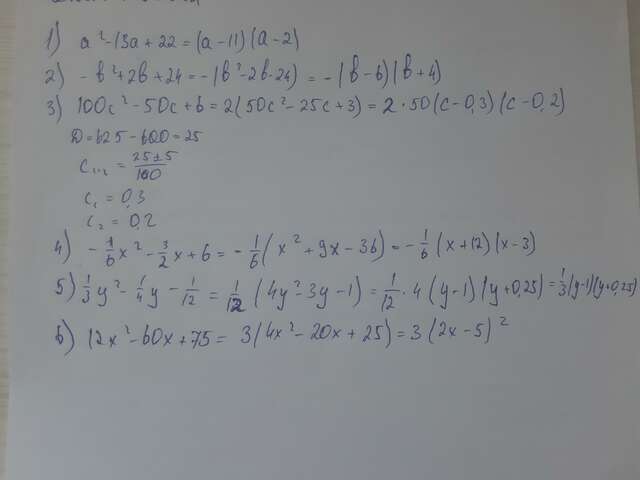 1) a²-13a+22=(a-11)(a-2)
2) -b²+2b+24=-(b²-2b-24)=-(b-6)(b+4)
3) 100c²-50c+6=2(50c²-25c+3)=2·50(c-0,3)(c-0,2)
D=625-600=25
c₁,₂=(25±5)/100
c₁=0,3
c₂=0,2
4) -1/6x²-3/2x+6=-1/6(x²+9x-36)=-1/6(x+12)(x-3)
5) 1/3y²-1/4y-1/12=1/12(4y²-3y-1)=1/12·4(y-1)(y+0,25)=1/3(y-1)(y+0,25)
6) 12x²-60x+75=3(4x²-20x+25)=3(2x-5)²